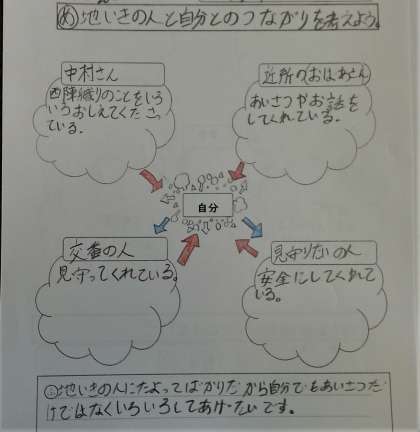 め地いきの人と自分とのつながりを考えよう。
中村さん
西陣織りのことをいろ
いろおしえてくださっ
ている。
近所のおばあさん
あいさつやお話を
してくれている。
自分
交番の人
見守ってくれている。
見守りたいの人
安全にしてくれて
いる。
地いきの人にたよってばかりだから自分でもあいさつだ
けではなくいろいろしてあげたいです。